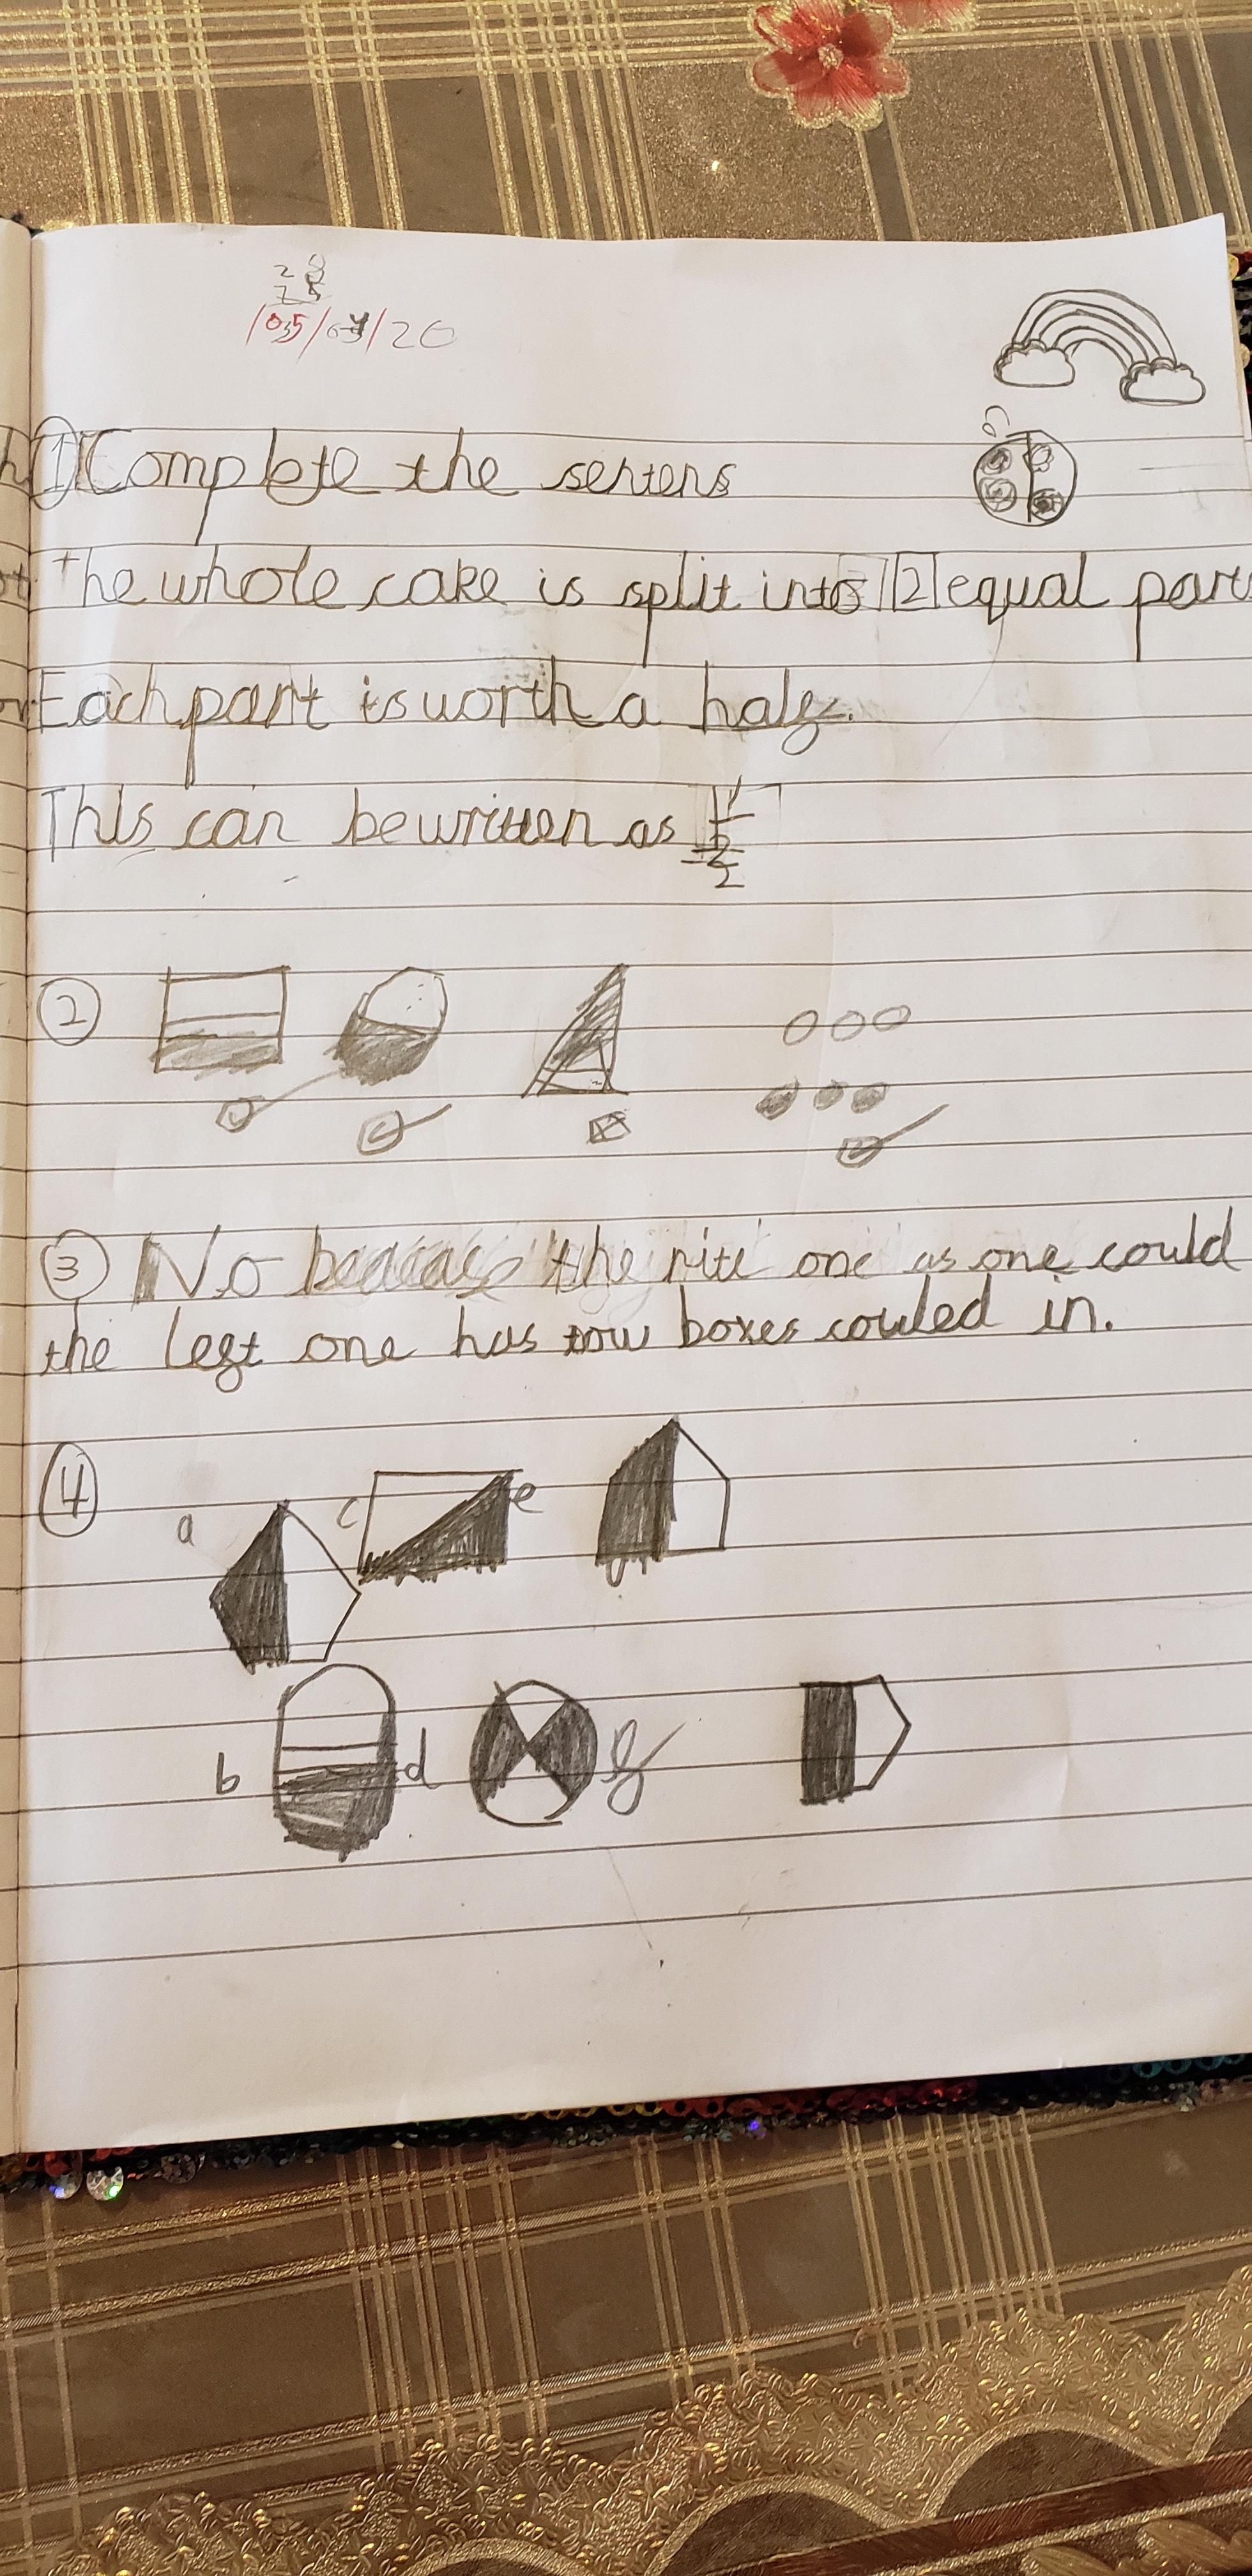 ① Complete the sentens
The whole cake is split into 2 equal parts
Each part is worth a half.
This can be written as 1/2
②
③ No because the rite one as one could
the left one has tow boxes couled in.
④
a c e
b d f